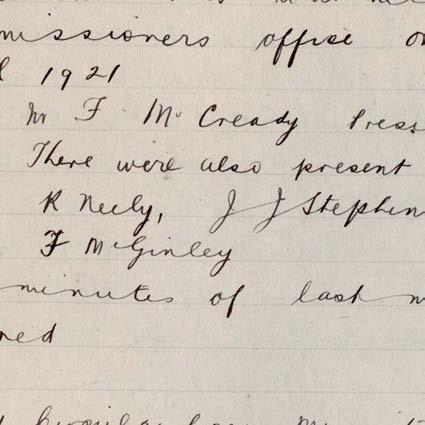 missioners office on
1921
Mr F. McCready Press
There were also present
R Neely, J J Stephen
F McGinley
minutes of last m
red